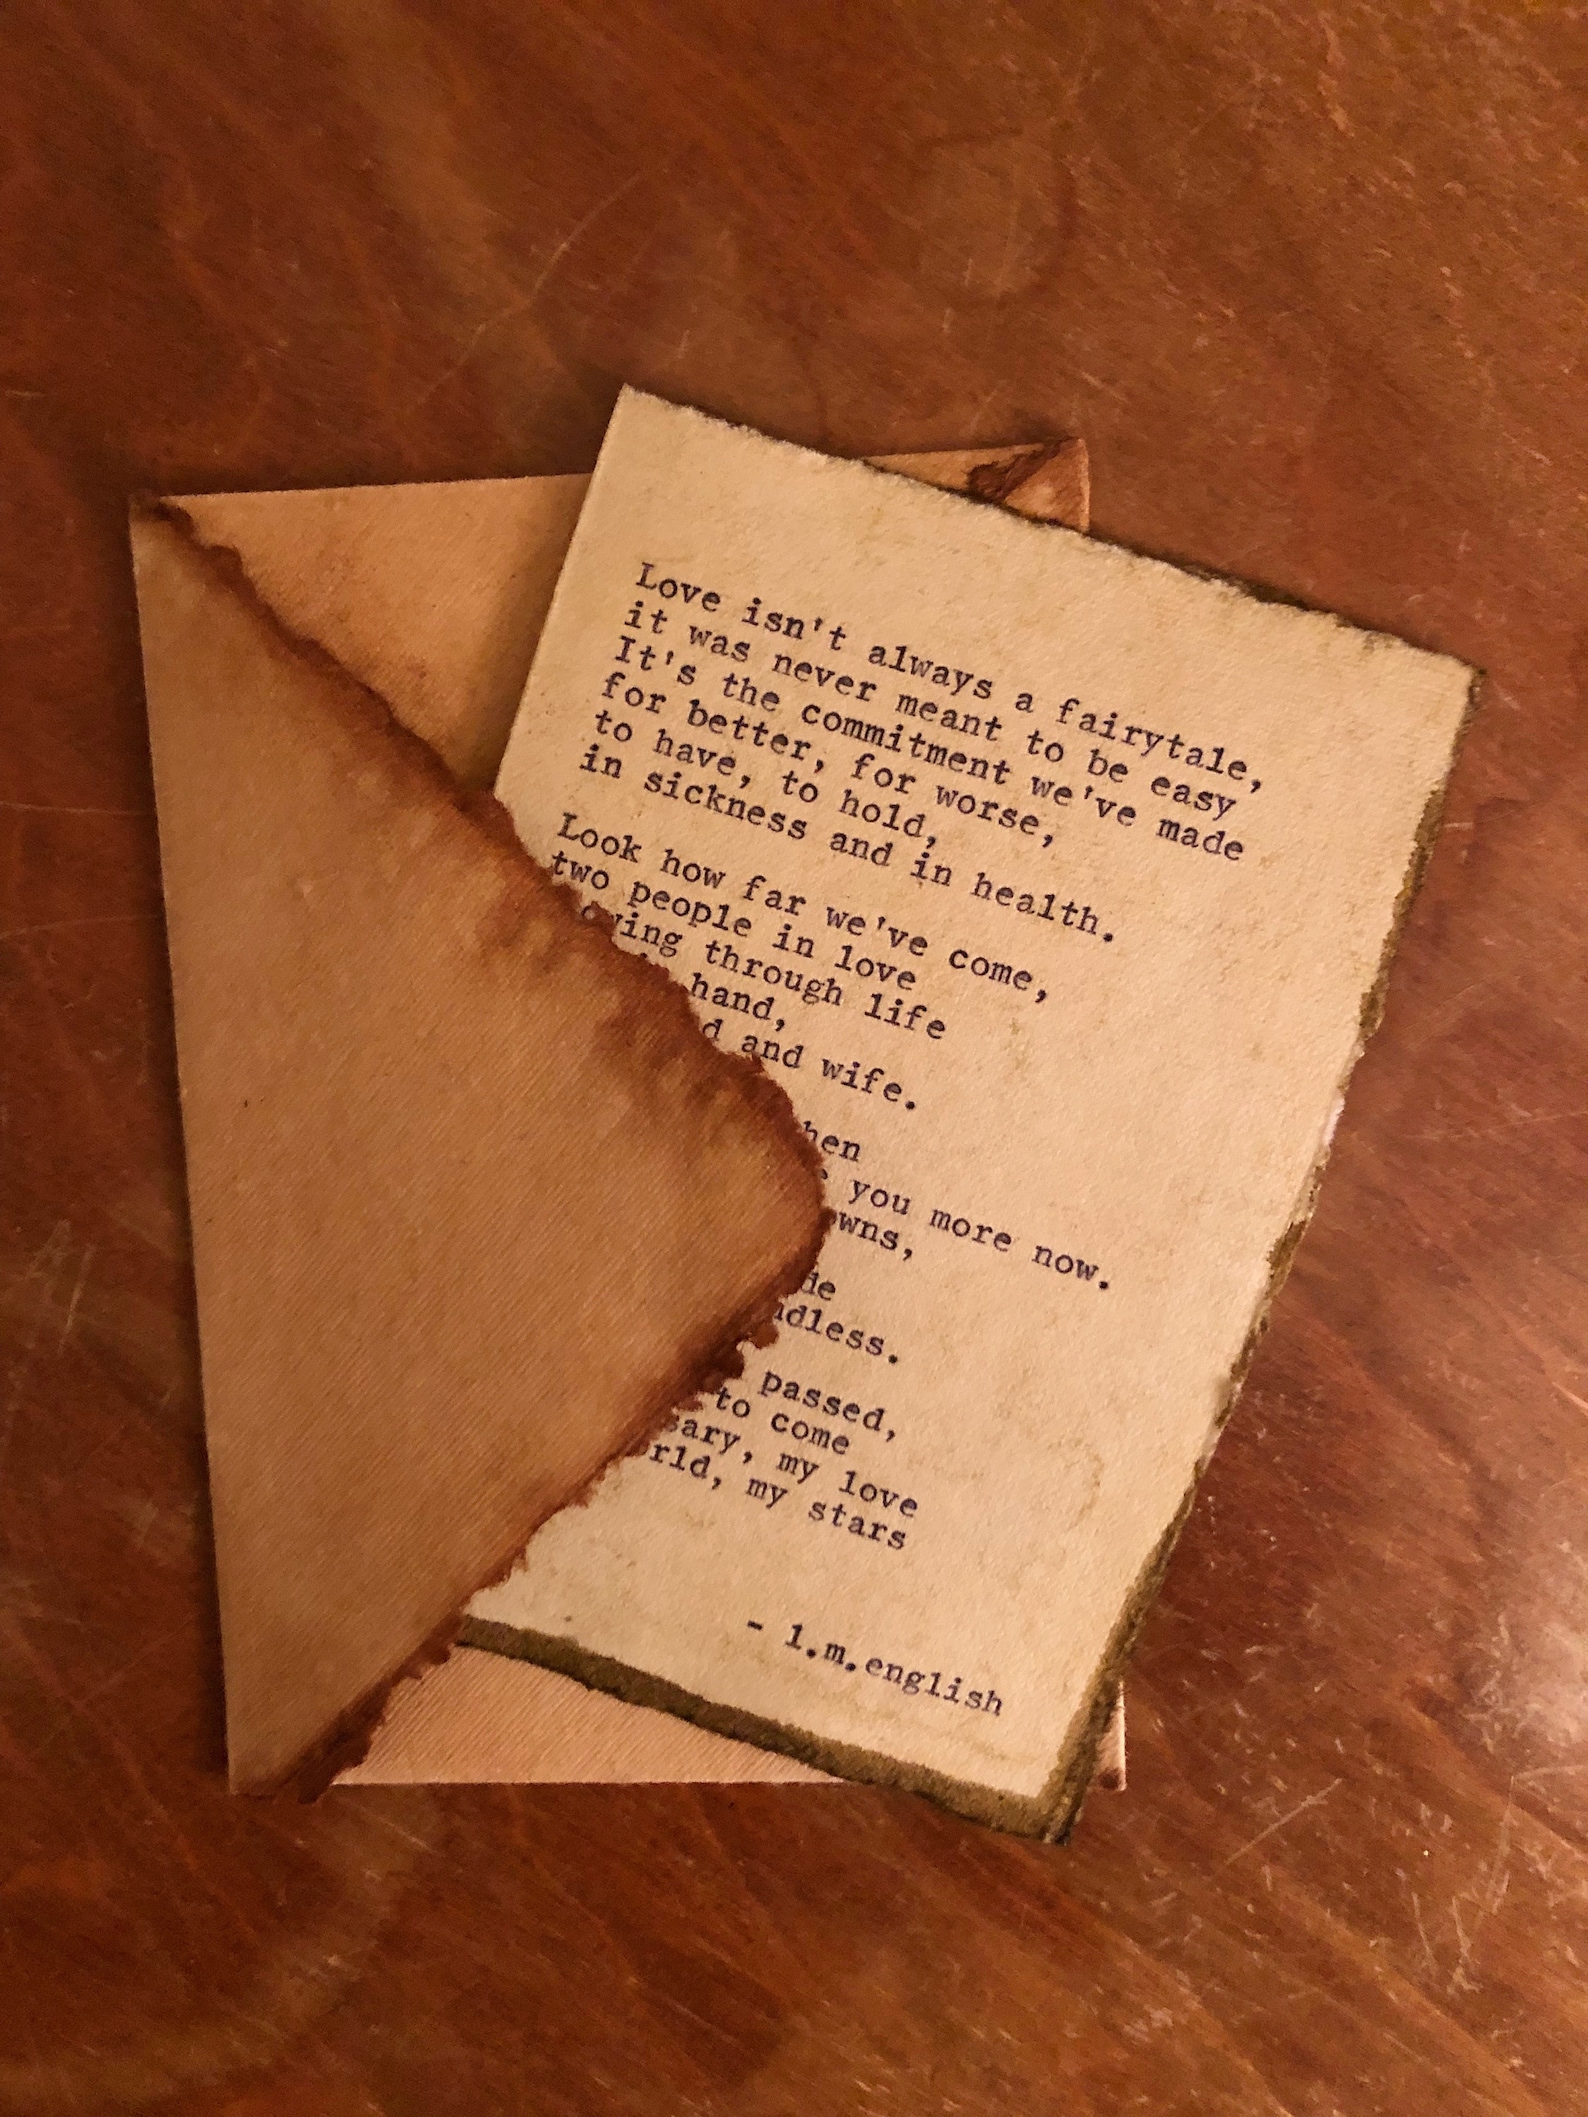 Love isn't always a fairytale,
it was never meant to be easy
It's the commitment we've made
for better, for worse,
to have, to hold,
in sickness and in health.
Look how far we've come,
two people in love
through life
hand,
and wife.
you more now.
passed,
to come
my love
my stars
- l.m.english